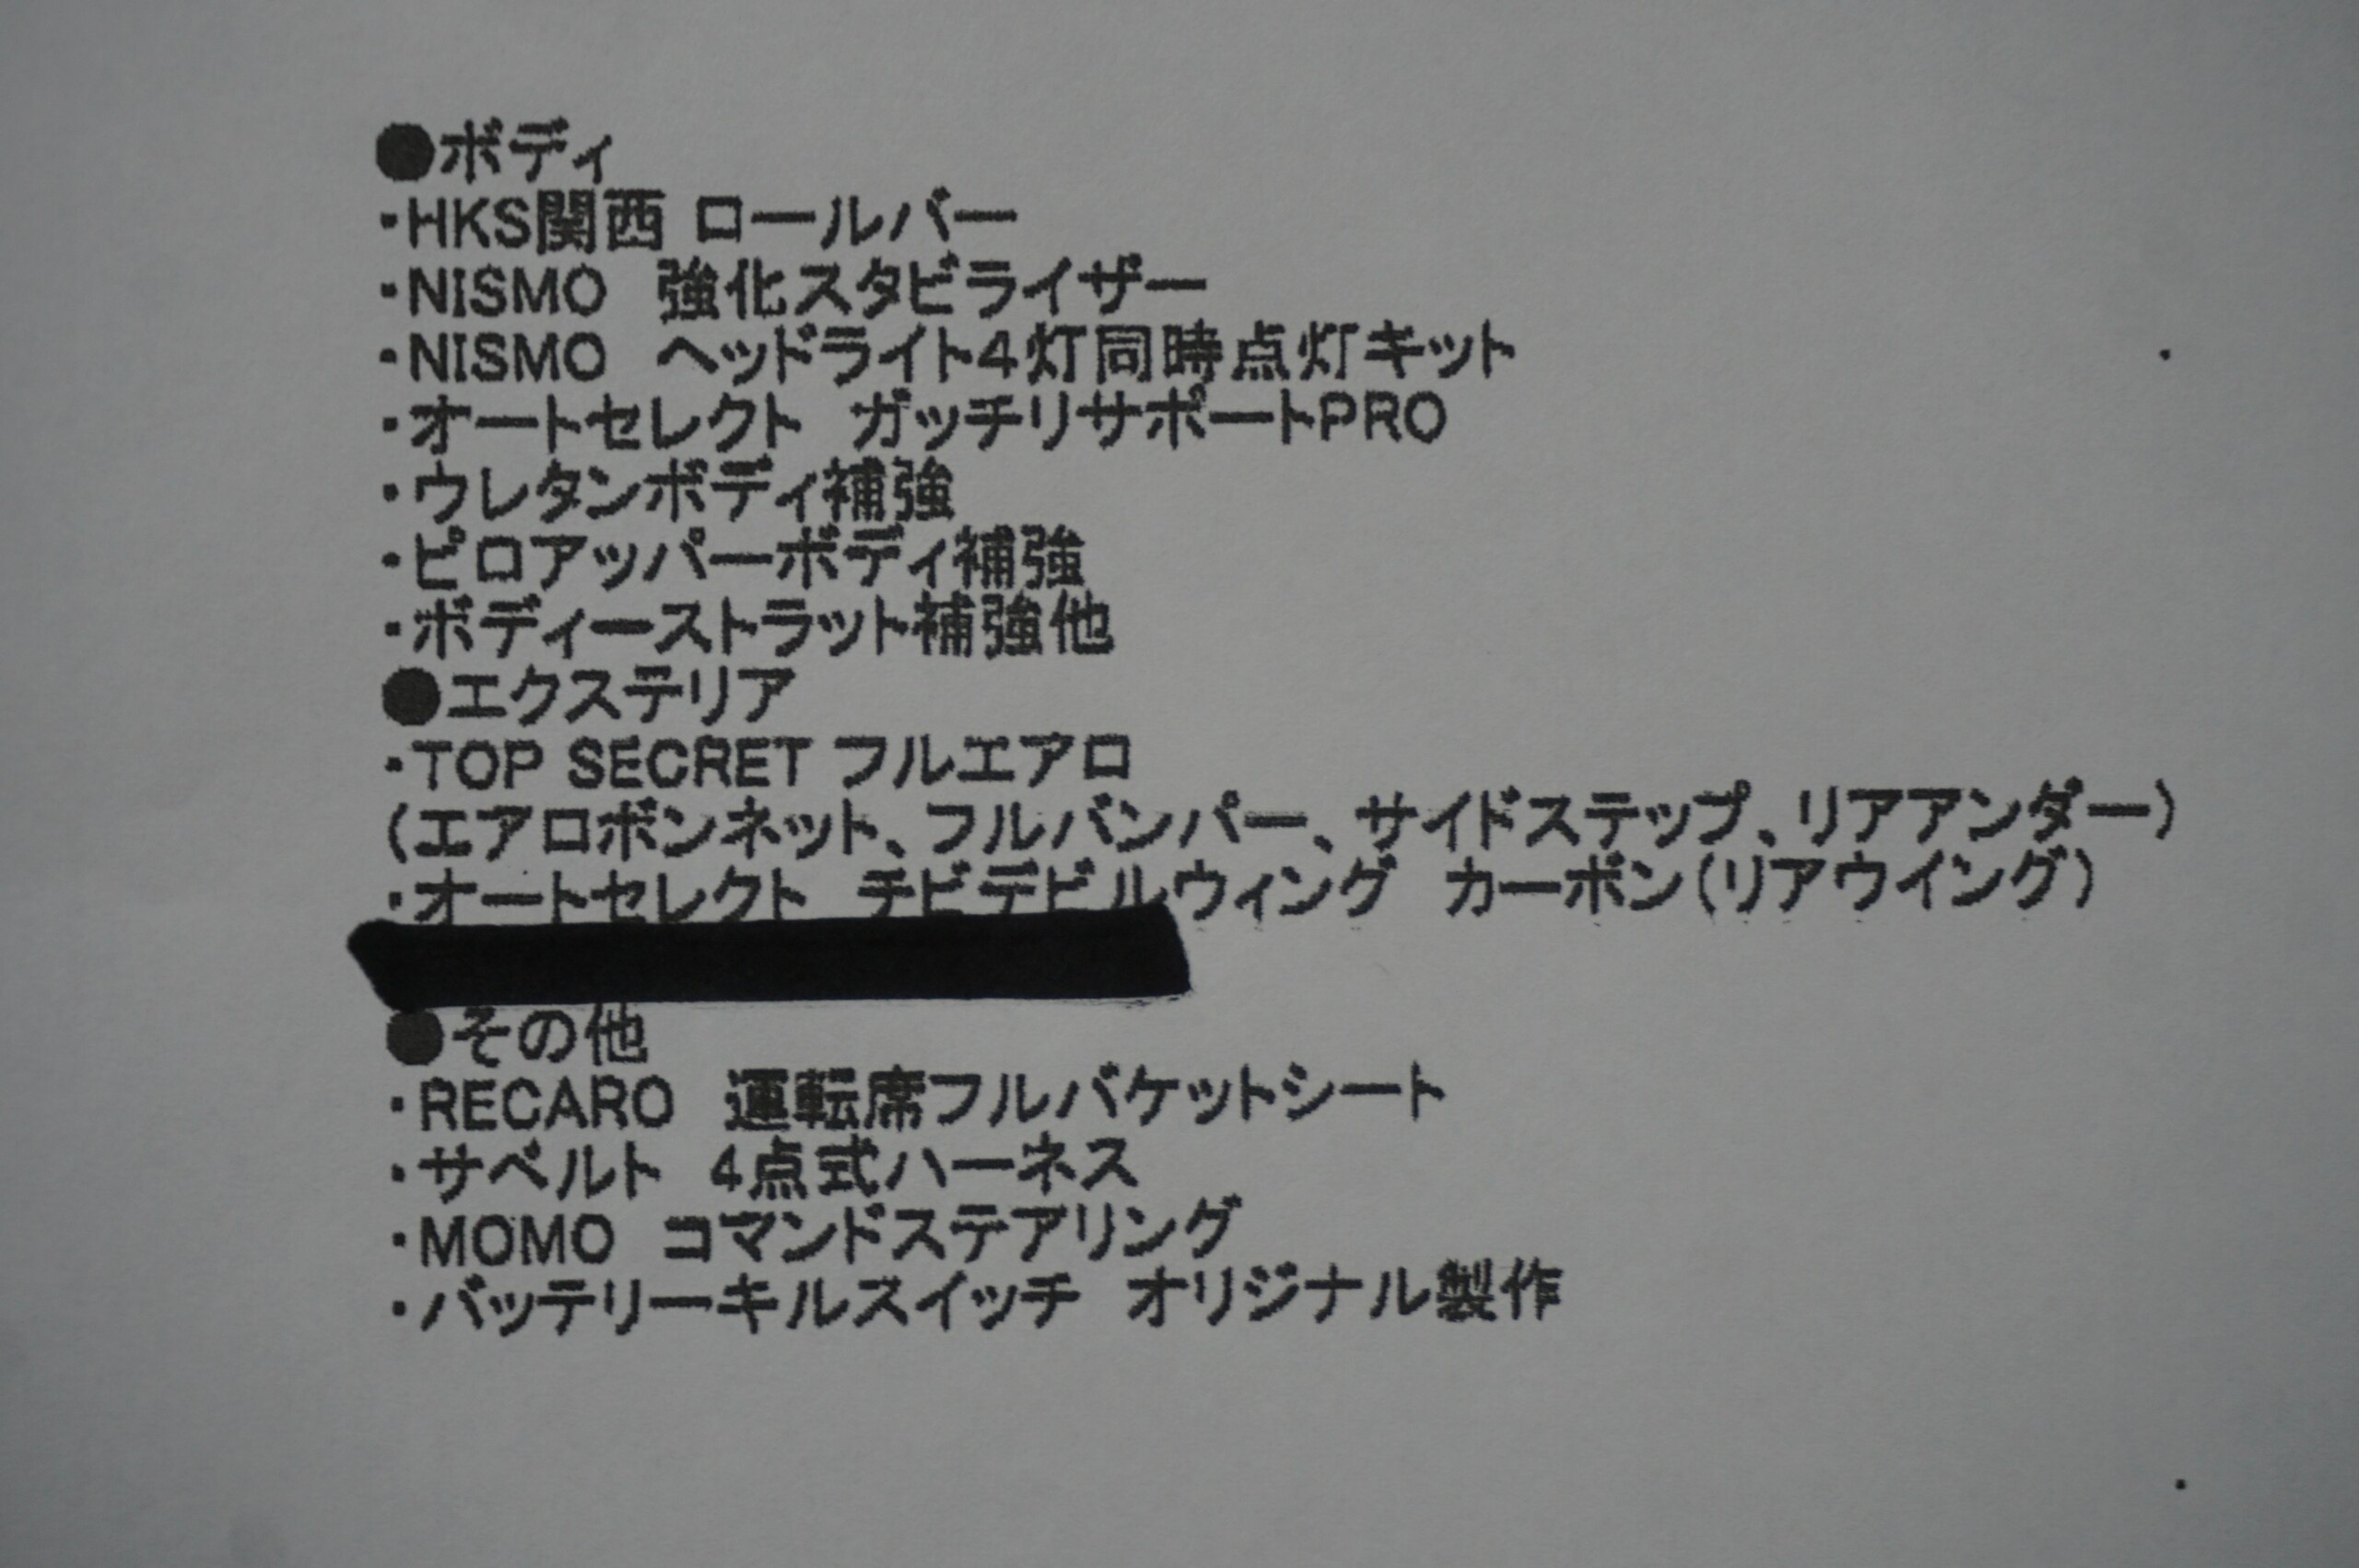 ●ボディ
・HKS関西 ロールバー
・NISMO 強化スタビライザー
・NISMO ヘッドライト4灯同時点灯キット
・オートセレクト ガッチリサポートPRO
・ウレタンボディ補強
・ピロアッパーボディ補強
・ボディーストラット補強他
●エクステリア
・TOP SECRET フルエアロ
(エアロボンネット、フルバンパー、サイドステップ、リアアンダー)
・オートセレクト チビデビルウィング カーボン(リアウイング)
●その他
・RECARO 運転席フルバケットシート
・サベルト 4点式ハーネス
・MOMO コマンドステアリング
・バッテリーキルスイッチ オリジナル製作